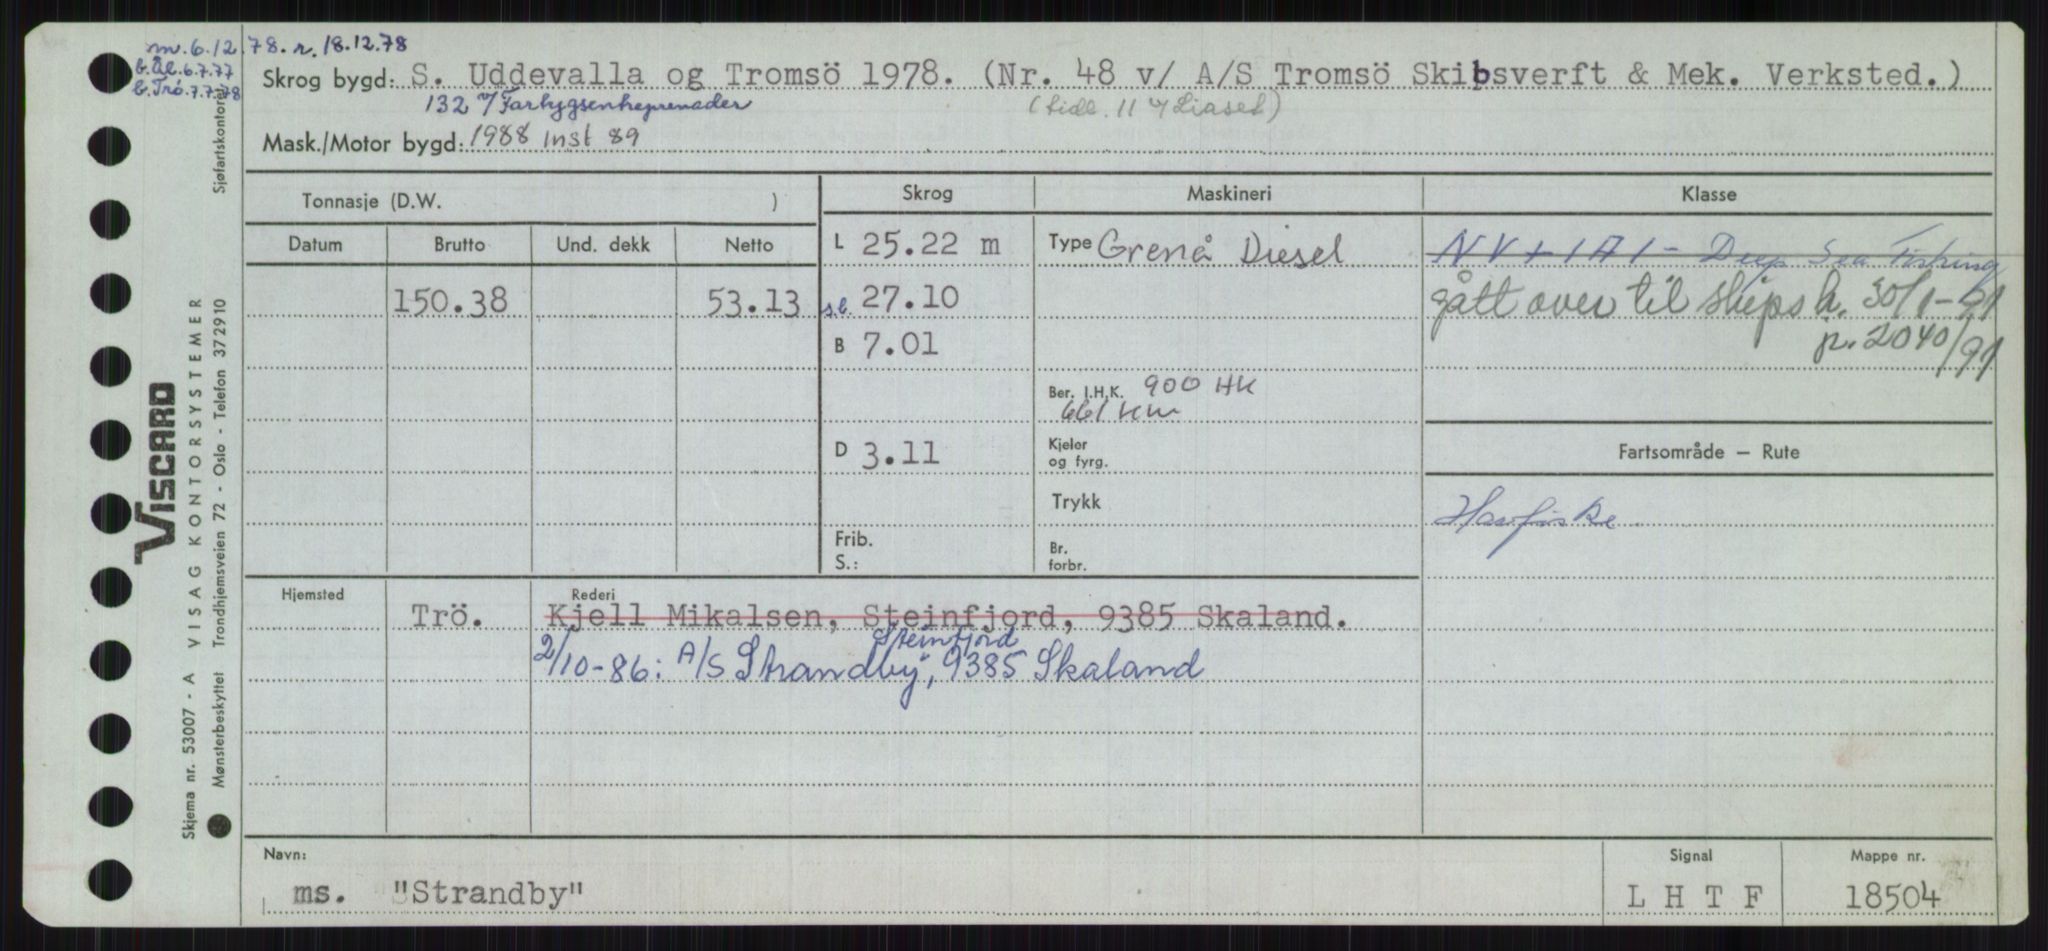 m. 6.12.78. r. 18.12.78
b. Ål. 6.7.77
b. Trö. 7.7.78
Skrog bygd: S. Uddevalla og Tromsö 1978. (Nr. 48 v/ A/S Tromsö Skibsverft & Mek. Verksted.)
132 v/
(tidl. 11
Mask./Motor bygd: 1988 inst 89
Tonnasje (D.W. )
Skrog
Maskineri
Klasse
Datum
Brutto
Und. dekk
Netto
L 25.22 m
Type Grenå Diesel
NV + 1A1 - Deep Sea Fishing
150.38
53.13
s.l. 27.10
gått over til skips k. 30/1-91
B 7.01
jr. 2040/91
Ber. I.H.K. 900 HK
661 KW
D 3.11
Kjeler
og fyrg.
Fartsområde — Rute
Trykk
Havfiske
Frib.
S.:
Br.
forbr.
Hjemsted
Rederi
Trö. Kjell Mikalsen, Steinfjord, 9385 Skaland.
Steinfjord
2/10-86: A/S Strandby, 9385 Skaland
Navn:
Signal
Mappe nr.
ms. "Strandby"
L H T F
18504
Viscard
VISAG KONTORSYSTEMER
Skjema nr. 53007 - A
Mønsterbeskyttet Trondhjemsveien 72 - Oslo - Telefon 372910
Sjøfartskontoret